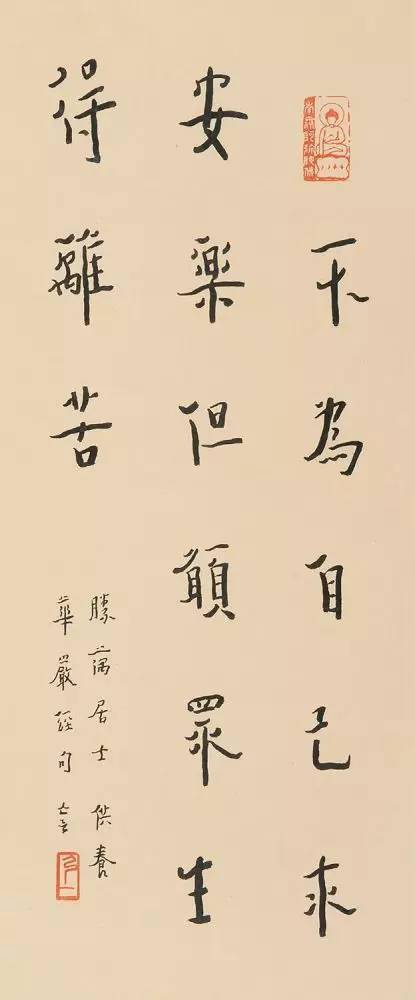 不為自己求
安樂但願眾生
得離苦
勝居士供養
華嚴經句亡言